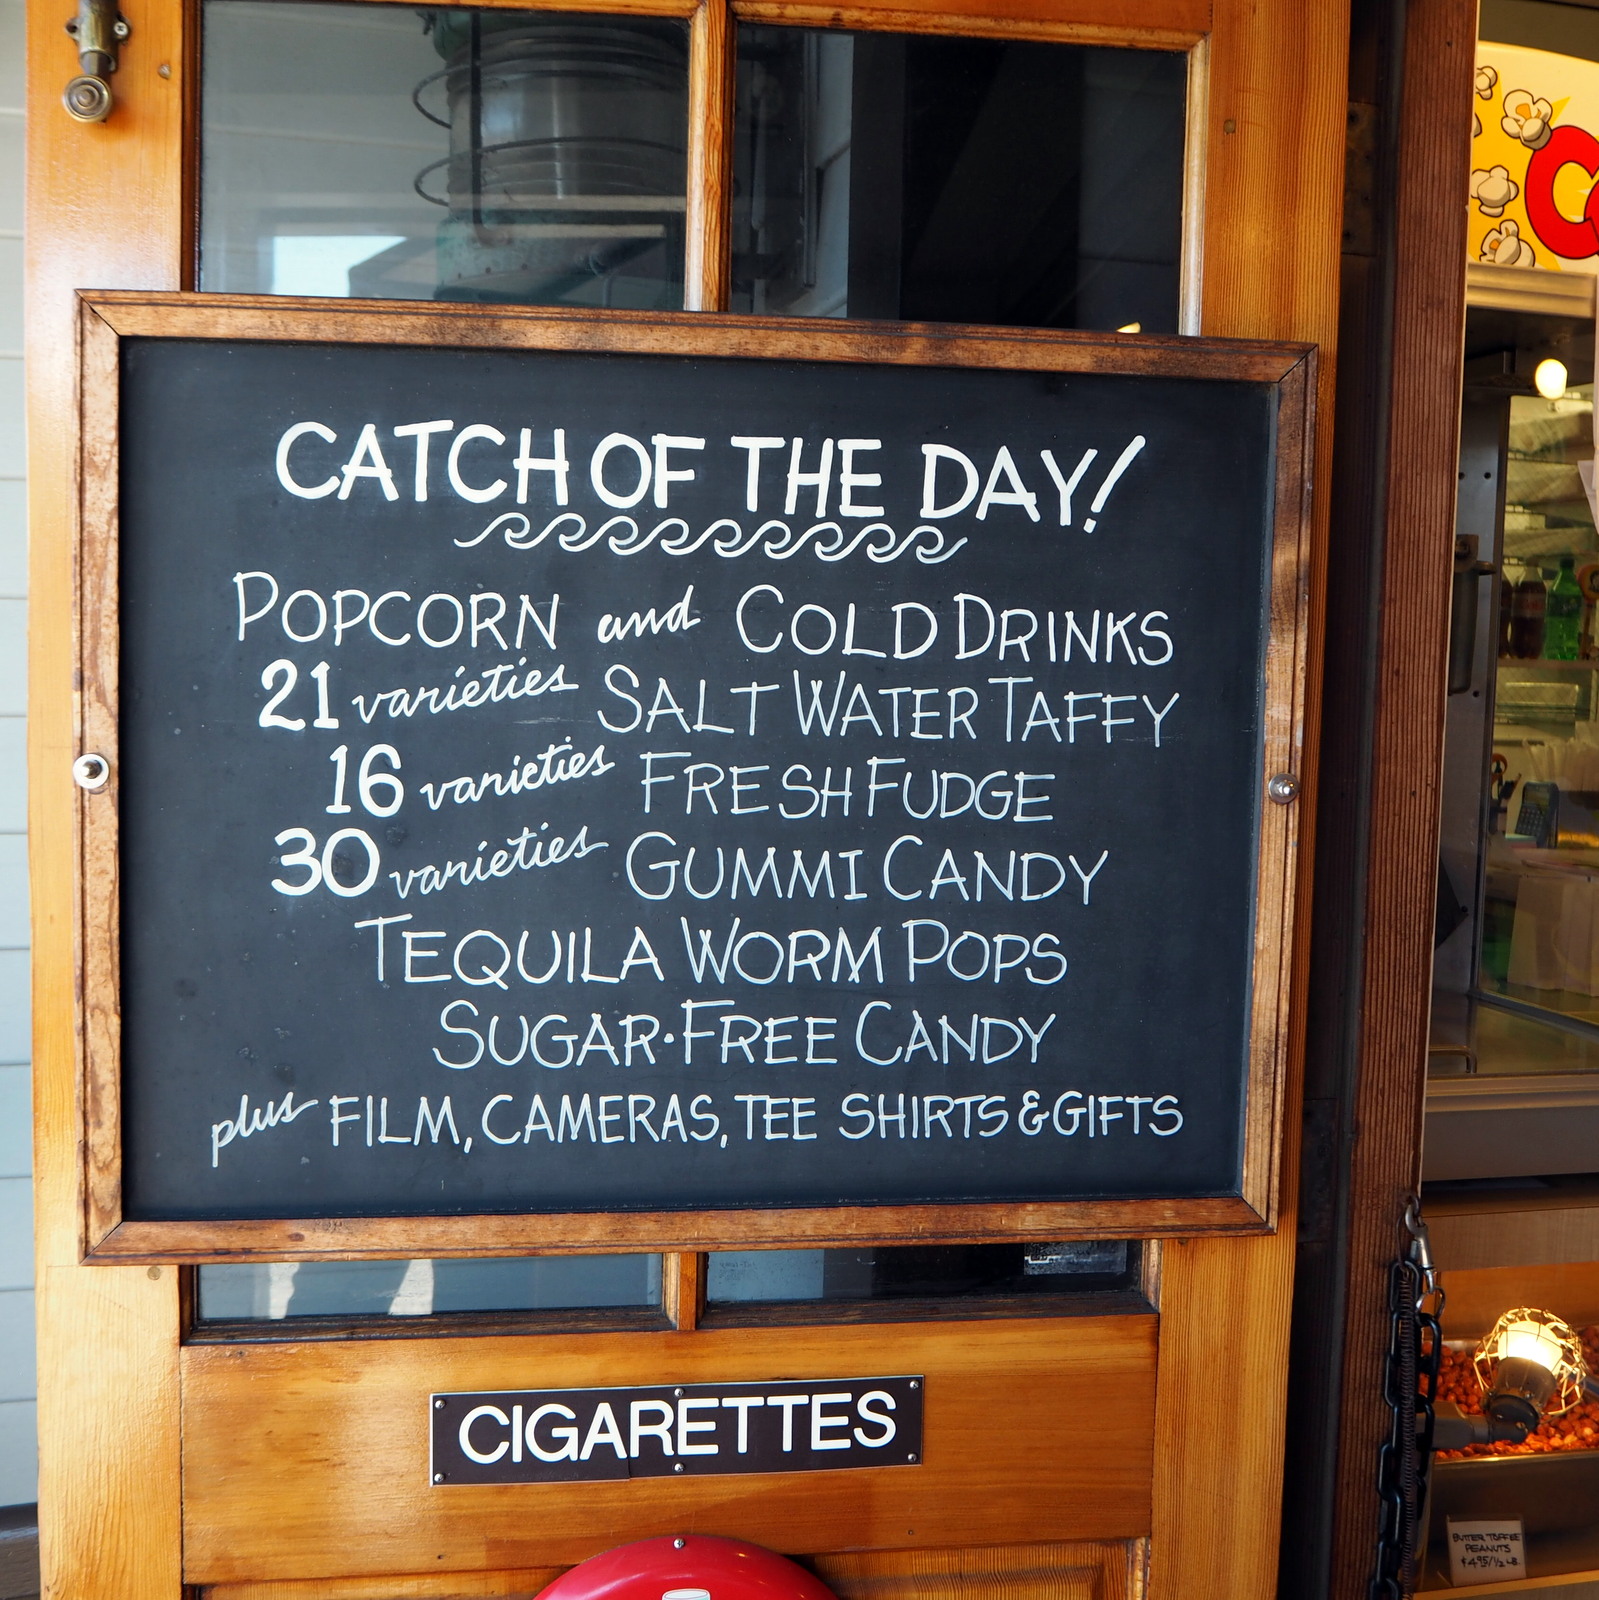 CATCH OF THE DAY!
POPCORN and COLD DRINKS
21 varieties SALT WATER TAFFY
16 varieties FRESH FUDGE
30 varieties GUMMI CANDY
TEQUILA WORM POPS
SUGAR·FREE CANDY
plus FILM, CAMERAS, TEE SHIRTS & GIFTS
CIGARETTES
BUTTER TOFFEE
PEANUTS
$4.95/½ LB.